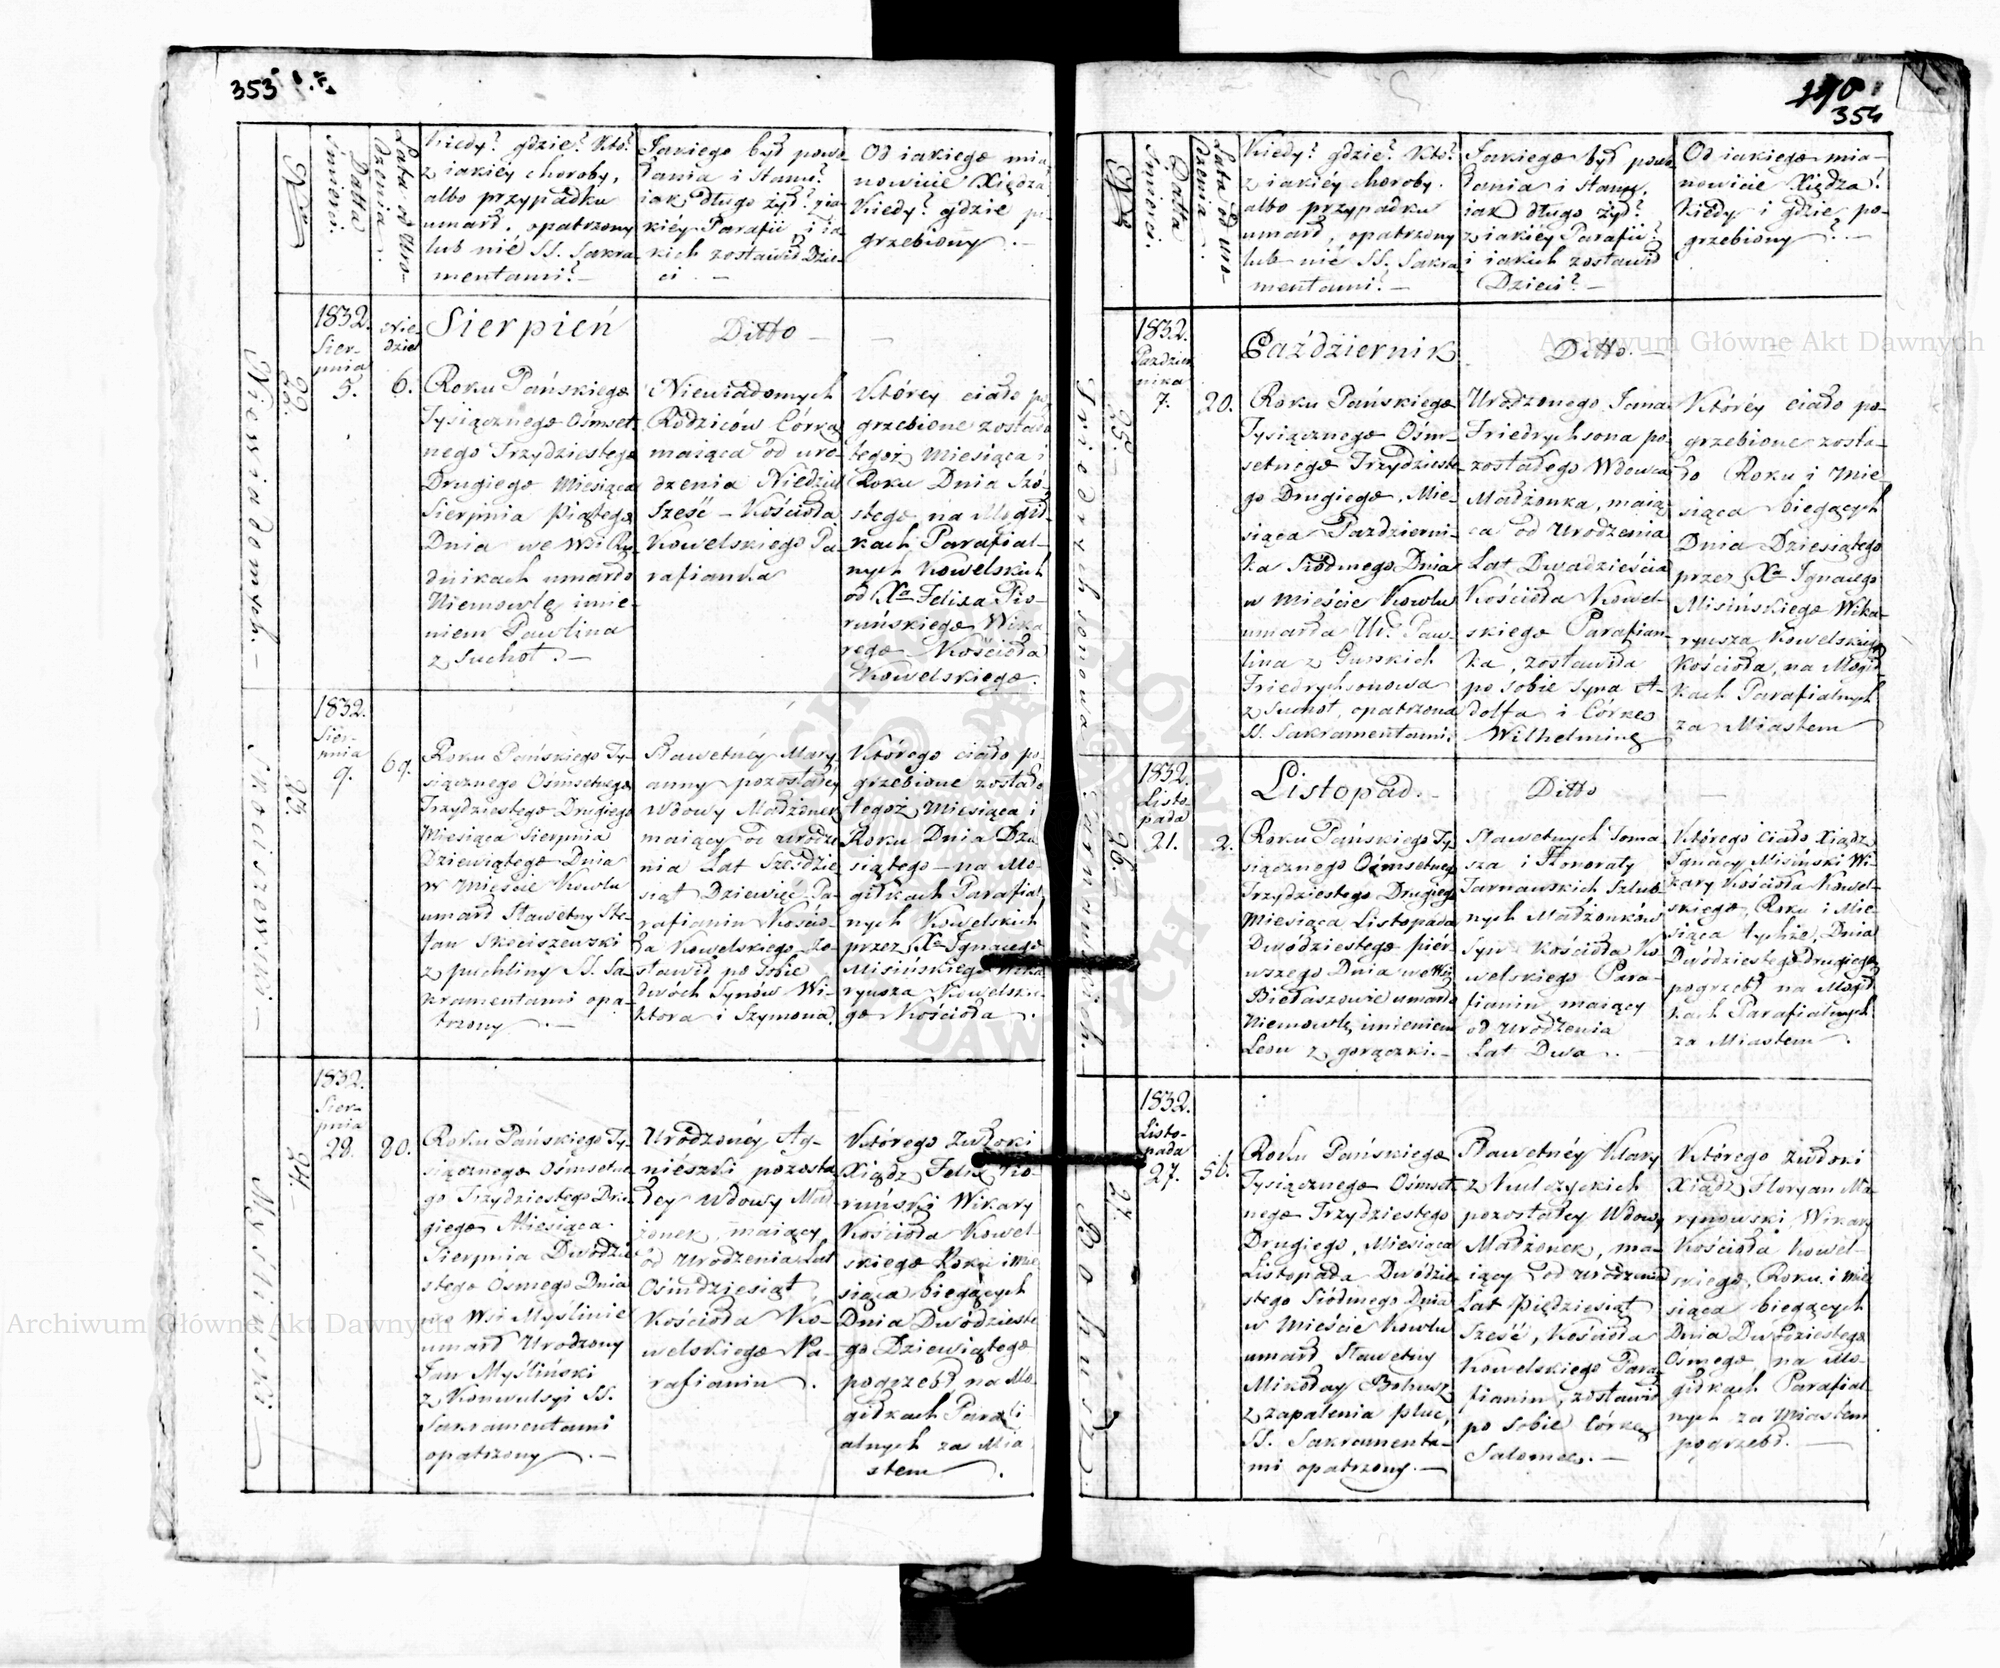 353
Nro
Datta
Śmierci.
Lata od Uro-
dzenia.
Kiedy? gdzie? Kto?
z iakiéy choroby,
albo przypadku
umarł, opatrzony
lub nie SS. Sakra-
mentami? —
Jakiego był powo-
łania i Stanu?
iak długo żył? z ia-
kiéy Parafii, i ia-
kich zostawił Dzie-
ci. —
Od iakiego mia-
nowicie Xiędza
Kiedy? gdzie po-
grzebiony. —
Niewiadomych. —
22.
1832.
Sier-
pnia
5.
Nie-
dziel
6.
Sierpień
Roku Pańskiego
Tysiącznego Ośmset-
nego Trzydziestego
Drugiego Miesiąca
Sierpnia Piątego
Dnia we Wsi Ru-
dnikach umarło
Niemowlę imie-
niem Pawlina
z Suchot. —
Ditto —
Niewiadomych
Rodziców Córka
maiąca od uro-
dzenia Niedziel
Sześć — Kościoła
Kowelskiego Pa-
rafianka
—
Którey ciało po-
grzebione zostało
tegoż Miesiąca i
Roku Dnia Szó-
stego na Mogił-
kach Parafial-
nych Kowelskich
od Xa Felixa Pio-
ruńskiego Wika-
rego Kościoła
Kowelskiego.
Skociszewski —
23.
1832.
Sier-
pnia
9.
69.
Roku Pańskiego Ty-
siącznego Ośmsetnego
Trzydziestego Drugiego
Miesiąca Sierpnia
Dziewiątego Dnia
w Mieście Kowlu
umarł Sławetny Ste-
fan Skociszewski
z puchliny SS. Sa-
kramentami opa-
trzony. —
Sławetnéy Mary-
anny pozostałey
Wdowy Małżonek
maiący od urodze-
nia Lat Sześdzie-
siąt Dziewięć Pa-
rafianin Kościo-
ła Kowelskiego Zo-
stawił po sobie
dwóch Synów Wi-
ktora i Szymona.
Którego ciało po-
grzebione zostało
tegoż Miesiąca i
Roku Dnia Dzie-
siątego — na Mo-
giłkach Parafial-
nych Kowelskich
przez Xa Ignacego
Misińskiego Wika-
ryusza Kowelskie-
go Kościoła.
Myśliński
24. —
1832.
Sier-
pnia
28.
80.
Roku Pańskiego Ty-
siącznego Ośmsetne-
go Trzydziestego Dru-
giego Miesiąca
Sierpnia Dwódzie-
stego Ósmego Dnia
we Wsi Myślinie
umarł Urodzony
Jan Myśliński
z Konwulsyi SS.
Sakramentami
opatrzony. —
Urodzonéy Ag-
niészki pozosta-
łey Wdowy Mał-
żonek, maiący
od Urodzenia Lat
Ośmdziesiąt,
Kościoła Ko-
welskiego Pa-
rafianin.
Którego zwłoki
Xiądz Felix Pio-
ruński Wikary
Kościoła Kowel-
skiego Roku i Mie-
siąca biegących
Dnia Dwódzieste-
go Dziewiątego
pogrzebł na Mo-
giłkach Parafi-
alnych za Mia-
stem.
190
354
Nro
Datta
Śmierci.
Lata od Uro-
dzenia.
Kiedy? gdzie? Kto?
z iakiéy choroby.
albo przypadku
umarł, opatrzony
lub nie SS. Sakra-
mentami? —
Jakiego był powo-
łania i Stanu,
iak długo żył?
z iakiéy Parafii?
i iakich zostawił
Dzieci? —
Od iakiego mia-
nowicie Xiędza?
Kiedy i gdzie po-
grzebiony? —
Friedrychsonowa
25. —
1832.
Paździer-
nika
7.
20.
Październik
Roku Pańskiego
Tysiącznego Ośm-
setnego Trzydzieste-
go Drugiego, Mie-
siąca Październi-
ka Siódmego Dnia
w Mieście Kowlu
umarła Ur. Paw-
lina z Gurskich
Friedrychsonowa
z Suchot, opatrzona
SS. Sakramentami.
Ditto. —
Urodzonego Jana
Friedrychsona po-
zostałego Wdowca
Małżonka, maią-
ca od Urodzenia
Lat Dwadzieścia
Kościoła Kowel-
skiego Parafian-
ka, zostawiła
po sobie Syna A-
dolfa i Córkę
Wilhelminę
Któréy ciało po-
grzebione zosta-
ło Roku i Mie-
siąca biegących
Dnia Dziesiątego
przez Xa Ignacego
Misińskiego Wika-
ryusza Kowelskiego
Kościoła, na Mogił-
kach Parafialnych
za Miastem
Tarnawskich. —
26. —
1832.
Listo-
pada
21.
2.
Listopad. —
Roku Pańskiego Ty-
siącznego Ośmsetnego
Trzydziestego Drugiego
Miesiąca Listopada
Dwódziestego pier-
wszego Dnia we Wsi
Biełaszowie umarło
Niemowlę, imieniem
Leon z gorączki. —
Ditto
Sławetnych Toma-
sza i Honoraty
Tarnawskich Szlub-
nych Małżonków
Syn Kościoła Ko-
welskiego Para-
fianin, maiący
od Urodzenia
Lat Dwa. —
—
Którego Ciało Xiądz
Ignacy Misiński Wi-
kary Kościoła Kowel-
skiego, Roku i Mie-
siąca tychże, Dnia
Dwódziestego drugiego
pogrzebł na Mogił-
kach Parafialnych
za Miastem.
Bohusz.
27.
1832.
Listo-
pada
27.
56.
Roku Pańskiego
Tysiącznego Ośmset-
nego Trzydziestego
Drugiego, Miesiąca
Listopada Dwódzie-
stego Siódmego Dnia
w Mieście Kowlu
umarł Sławetny
Mikołay Bohusz
z zapalenia płuc,
SS. Sakramenta-
mi opatrzony. —
Sławetnéy Klary
z Kulczyckich
pozostałey Wdowy
Małżonek, ma-
iący od Urodzenia
Lat Pięćdziesiąt
Sześć, Kościoła
Kowelskiego Para-
fianin, zostawił
po sobie Córkę
Salomeę. —
Którego zwłoki
Xiądz Floryan Ma-
rynowski, Wikary
Kościoła Kowel-
skiego, Roku i Mie-
siąca biegących
Dnia Dwódziestego
Ósmego, na Mo-
giłkach Parafial-
nych za Miastem
pogrzebł. —
Archiwum Główne Akt Dawnych
Archiwum Główne Akt Dawnych